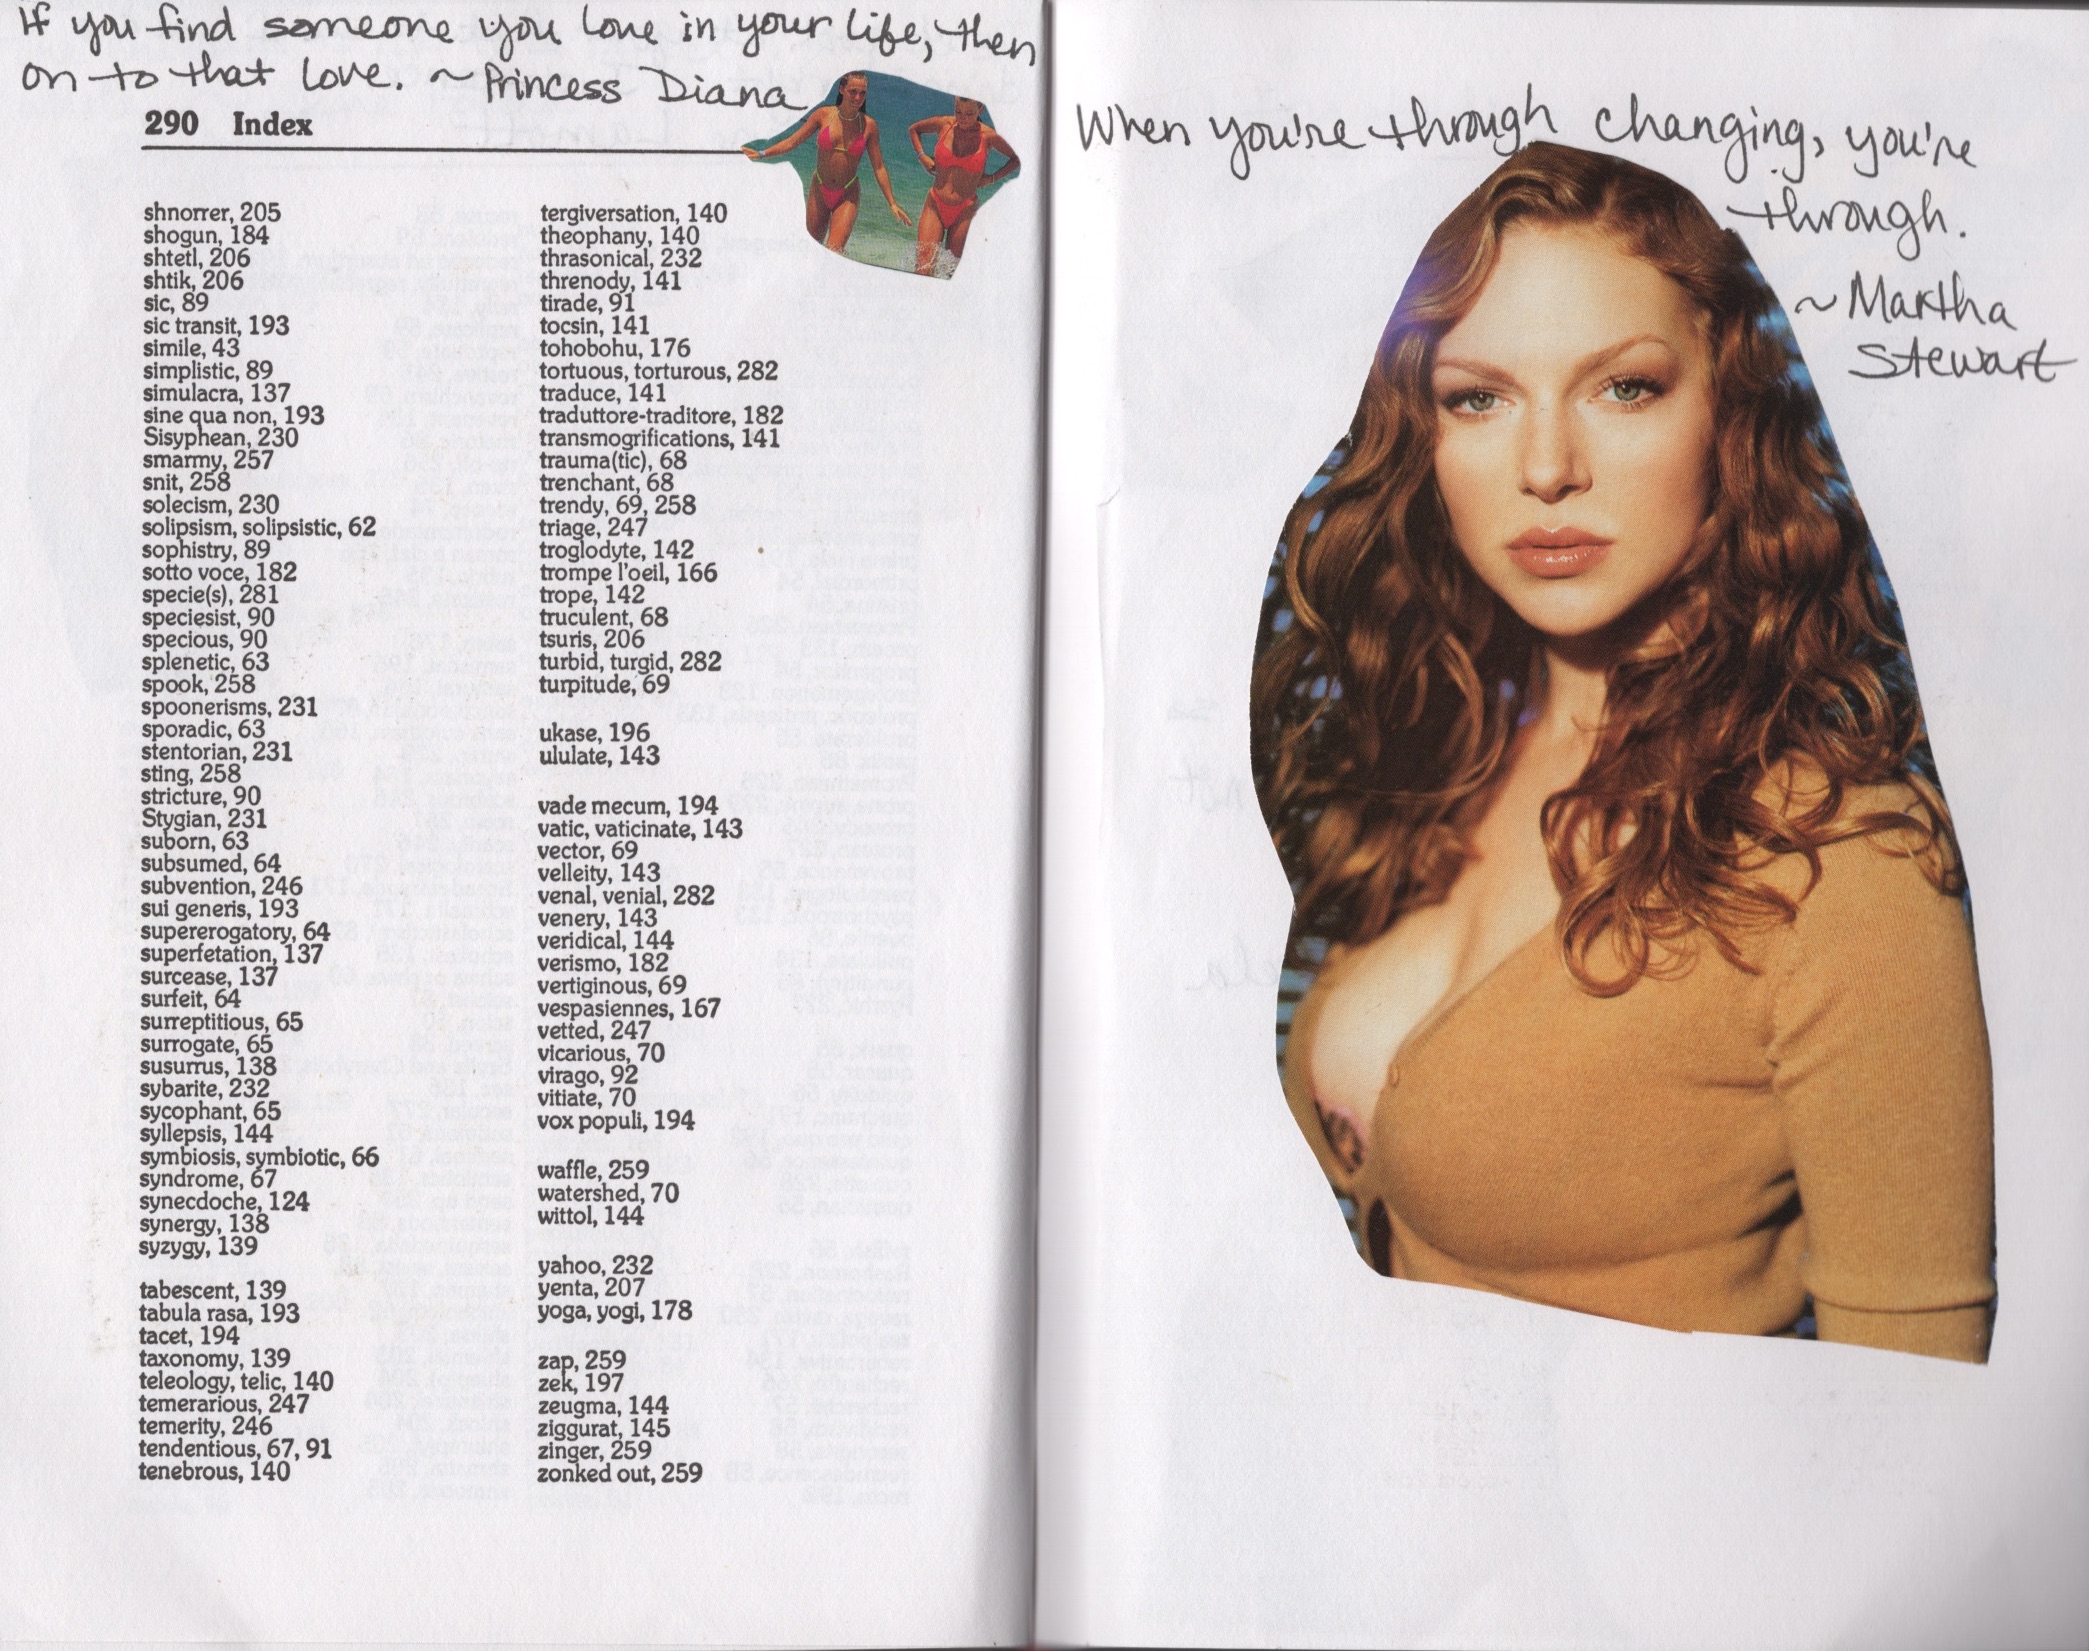 If you find someone you love in your life, then
on to that love. ~ Princess Diana
290 Index
shnorrer, 205
shogun, 184
shtetl, 206
shtik, 206
sic, 89
sic transit, 193
simile, 43
simplistic, 89
simulacra, 137
sine qua non, 193
Sisyphean, 230
smarmy, 257
snit, 258
solecism, 230
solipsism, solipsistic, 62
sophistry, 89
sotto voce, 182
specie(s), 281
speciesist, 90
specious, 90
splenetic, 63
spook, 258
spoonerisms, 231
sporadic, 63
stentorian, 231
sting, 258
stricture, 90
Stygian, 231
suborn, 63
subsumed, 64
subvention, 246
sui generis, 193
supererogatory, 64
superfetation, 137
surcease, 137
surfeit, 64
surreptitious, 65
surrogate, 65
susurrus, 138
sybarite, 232
sycophant, 65
syllepsis, 144
symbiosis, symbiotic, 66
syndrome, 67
synecdoche, 124
synergy, 138
syzygy, 139
tabescent, 139
tabula rasa, 193
tacet, 194
taxonomy, 139
teleology, telic, 140
temerarious, 247
temerity, 246
tendentious, 67, 91
tenebrous, 140
tergiversation, 140
theophany, 140
thrasonical, 232
threnody, 141
tirade, 91
tocsin, 141
tohobohu, 176
tortuous, torturous, 282
traduce, 141
traduttore-traditore, 182
transmogrifications, 141
trauma(tic), 68
trenchant, 68
trendy, 69, 258
triage, 247
troglodyte, 142
trompe l'oeil, 166
trope, 142
truculent, 68
tsuris, 206
turbid, turgid, 282
turpitude, 69
ukase, 196
ululate, 143
vade mecum, 194
vatic, vaticinate, 143
vector, 69
velleity, 143
venal, venial, 282
venery, 143
veridical, 144
verismo, 182
vertiginous, 69
vespasiennes, 167
vetted, 247
vicarious, 70
virago, 92
vitiate, 70
vox populi, 194
waffle, 259
watershed, 70
wittol, 144
yahoo, 232
yenta, 207
yoga, yogi, 178
zap, 259
zek, 197
zeugma, 144
ziggurat, 145
zinger, 259
zonked out, 259
When you're through changing, you're
through.
~ Martha
Stewart